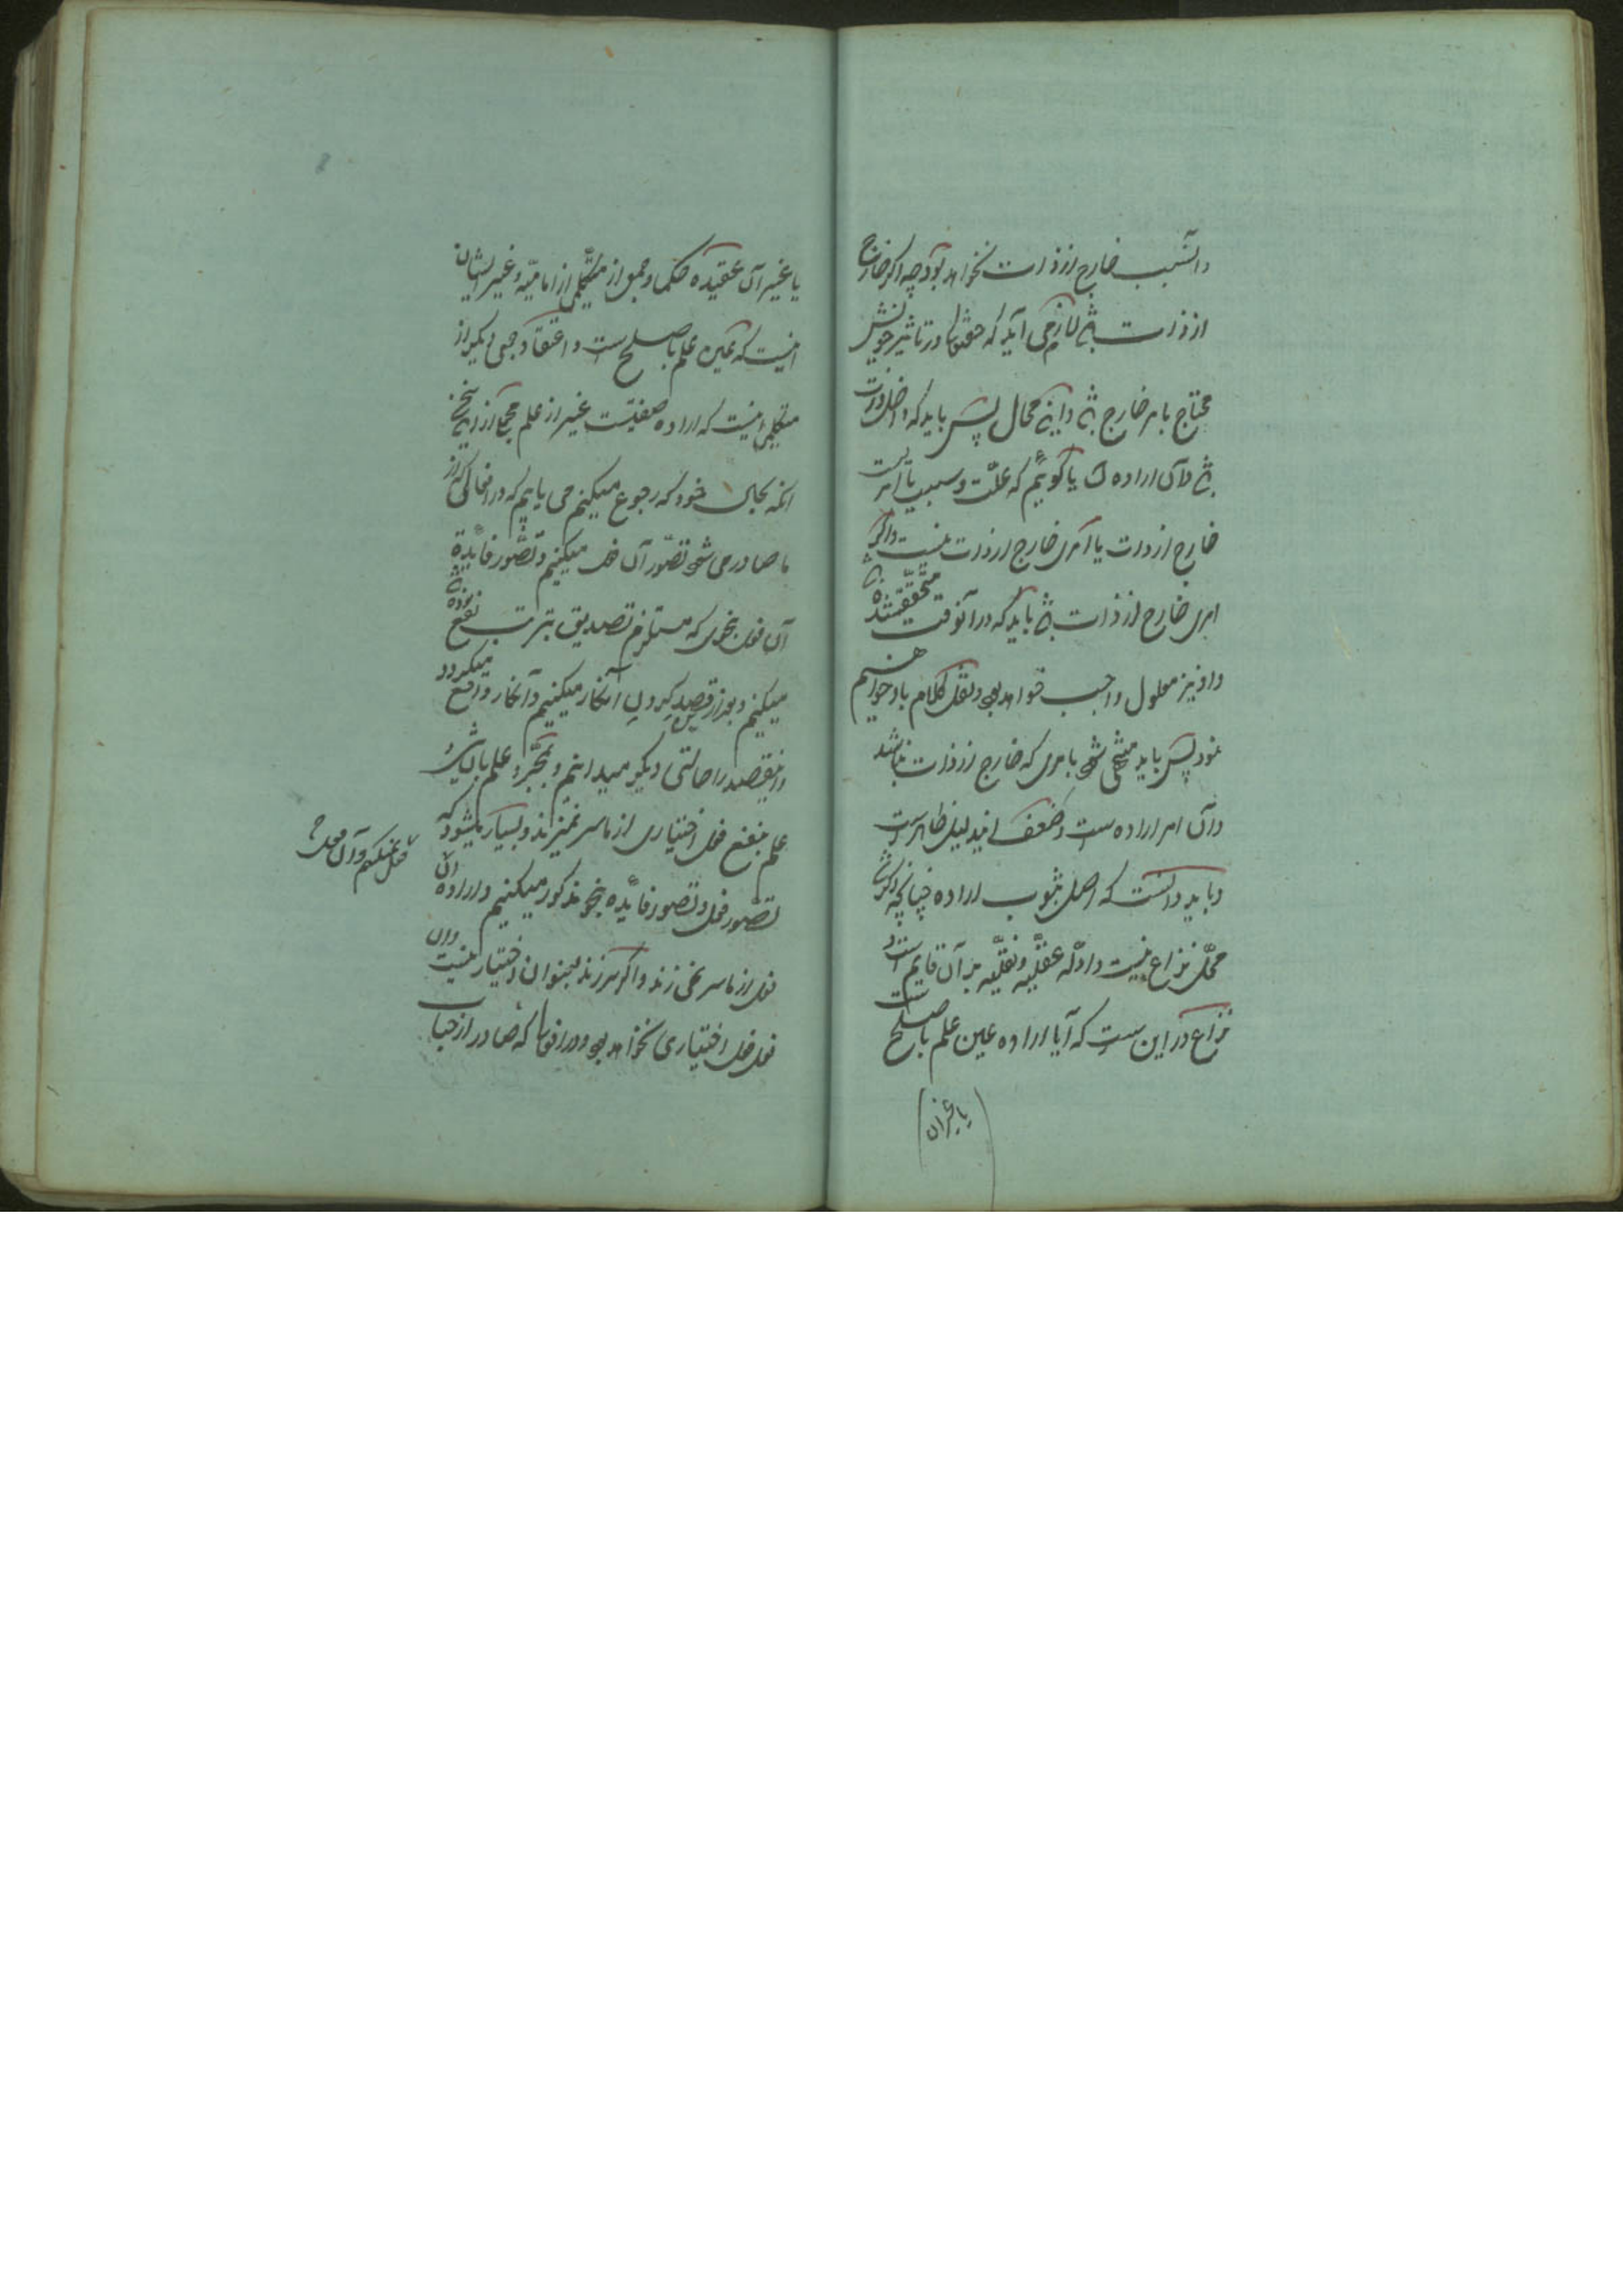 و آنسبب خارج از ذات نخواهد بود چه اگر خارج
از ذات باشد لازم می آید که حقتعالی در تاثیر خویش
محتاج بامر خارج باشد و این محال پس باید که داخل ذات
باشد و آن اراده است یا گوئیم که علت و سبب یا امریست
خارج از ذات یا امری خارج از ذات نیست و اگر
امری خارج از ذات باشد باید که در آنوقت متحقق باشد
و او نیز معلول واجب خواهد بود و نقل کلام باو خواهیم
نمود پس باید منتهی شود بامری که خارج از ذات نباشد
و آن امر اراده است و ضعف ایندلیل ظاهر است
و باید دانست که اصل ثبوت اراده چنانچه ذکر شد
محل نزاع نیست و ادله عقلیه و نقلیه بر آن قایم است و
نزاع در این است که آیا اراده عین علم باصلح است
یا غیر آن
یا غیر آن عقیده حکما و جمعی از متکلمین از امامیه و غیر ایشان
اینست که عین علم باصلح است و اعتقاد جمعی دیگر از
متکلمین اینست که اراده صفتیست غیر از علم
آنکه بحال خود که رجوع میکنیم می یابیم که در افعالی که از
ما صادر می شود تصور آن فعل میکنیم و تصور فایده
آن فعل بنحوی که مستلزم تصدیق بترتب نفع
میکنیم و بعد از قصد کردن آن کار میکنیم و آن کار واقع میگردد
و این قصد را حالتی دیگر میدانیم و بمجرد علم بآن شیء و
علم بنفع فعل اختیاری از ما سر نمیزند و بسیار میشود که
تصور فعل و تصور فایده بنحو مذکور میکنیم و اراده آن
فعل نمیکنیم و آن فعل
فعل از ما سر نمی زند و اگر سر زند بعنوان اختیار نیست و آن
فعل فعل اختیاری نخواهد بود و در افعالی که صادر از جناب